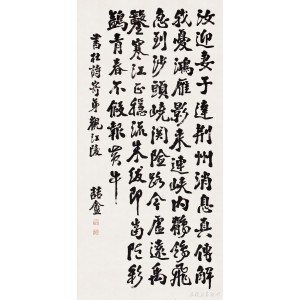 汝迎妻子達荊州消息真傳解
我憂鴻雁影來連峽內鶺鴒飛
急到沙頭嶢関險路今虛遠禹
鑿寒江正穩流朱紱即當隨彩
鷁青春不假報黃牛
書杜詩寄弟觀江陵